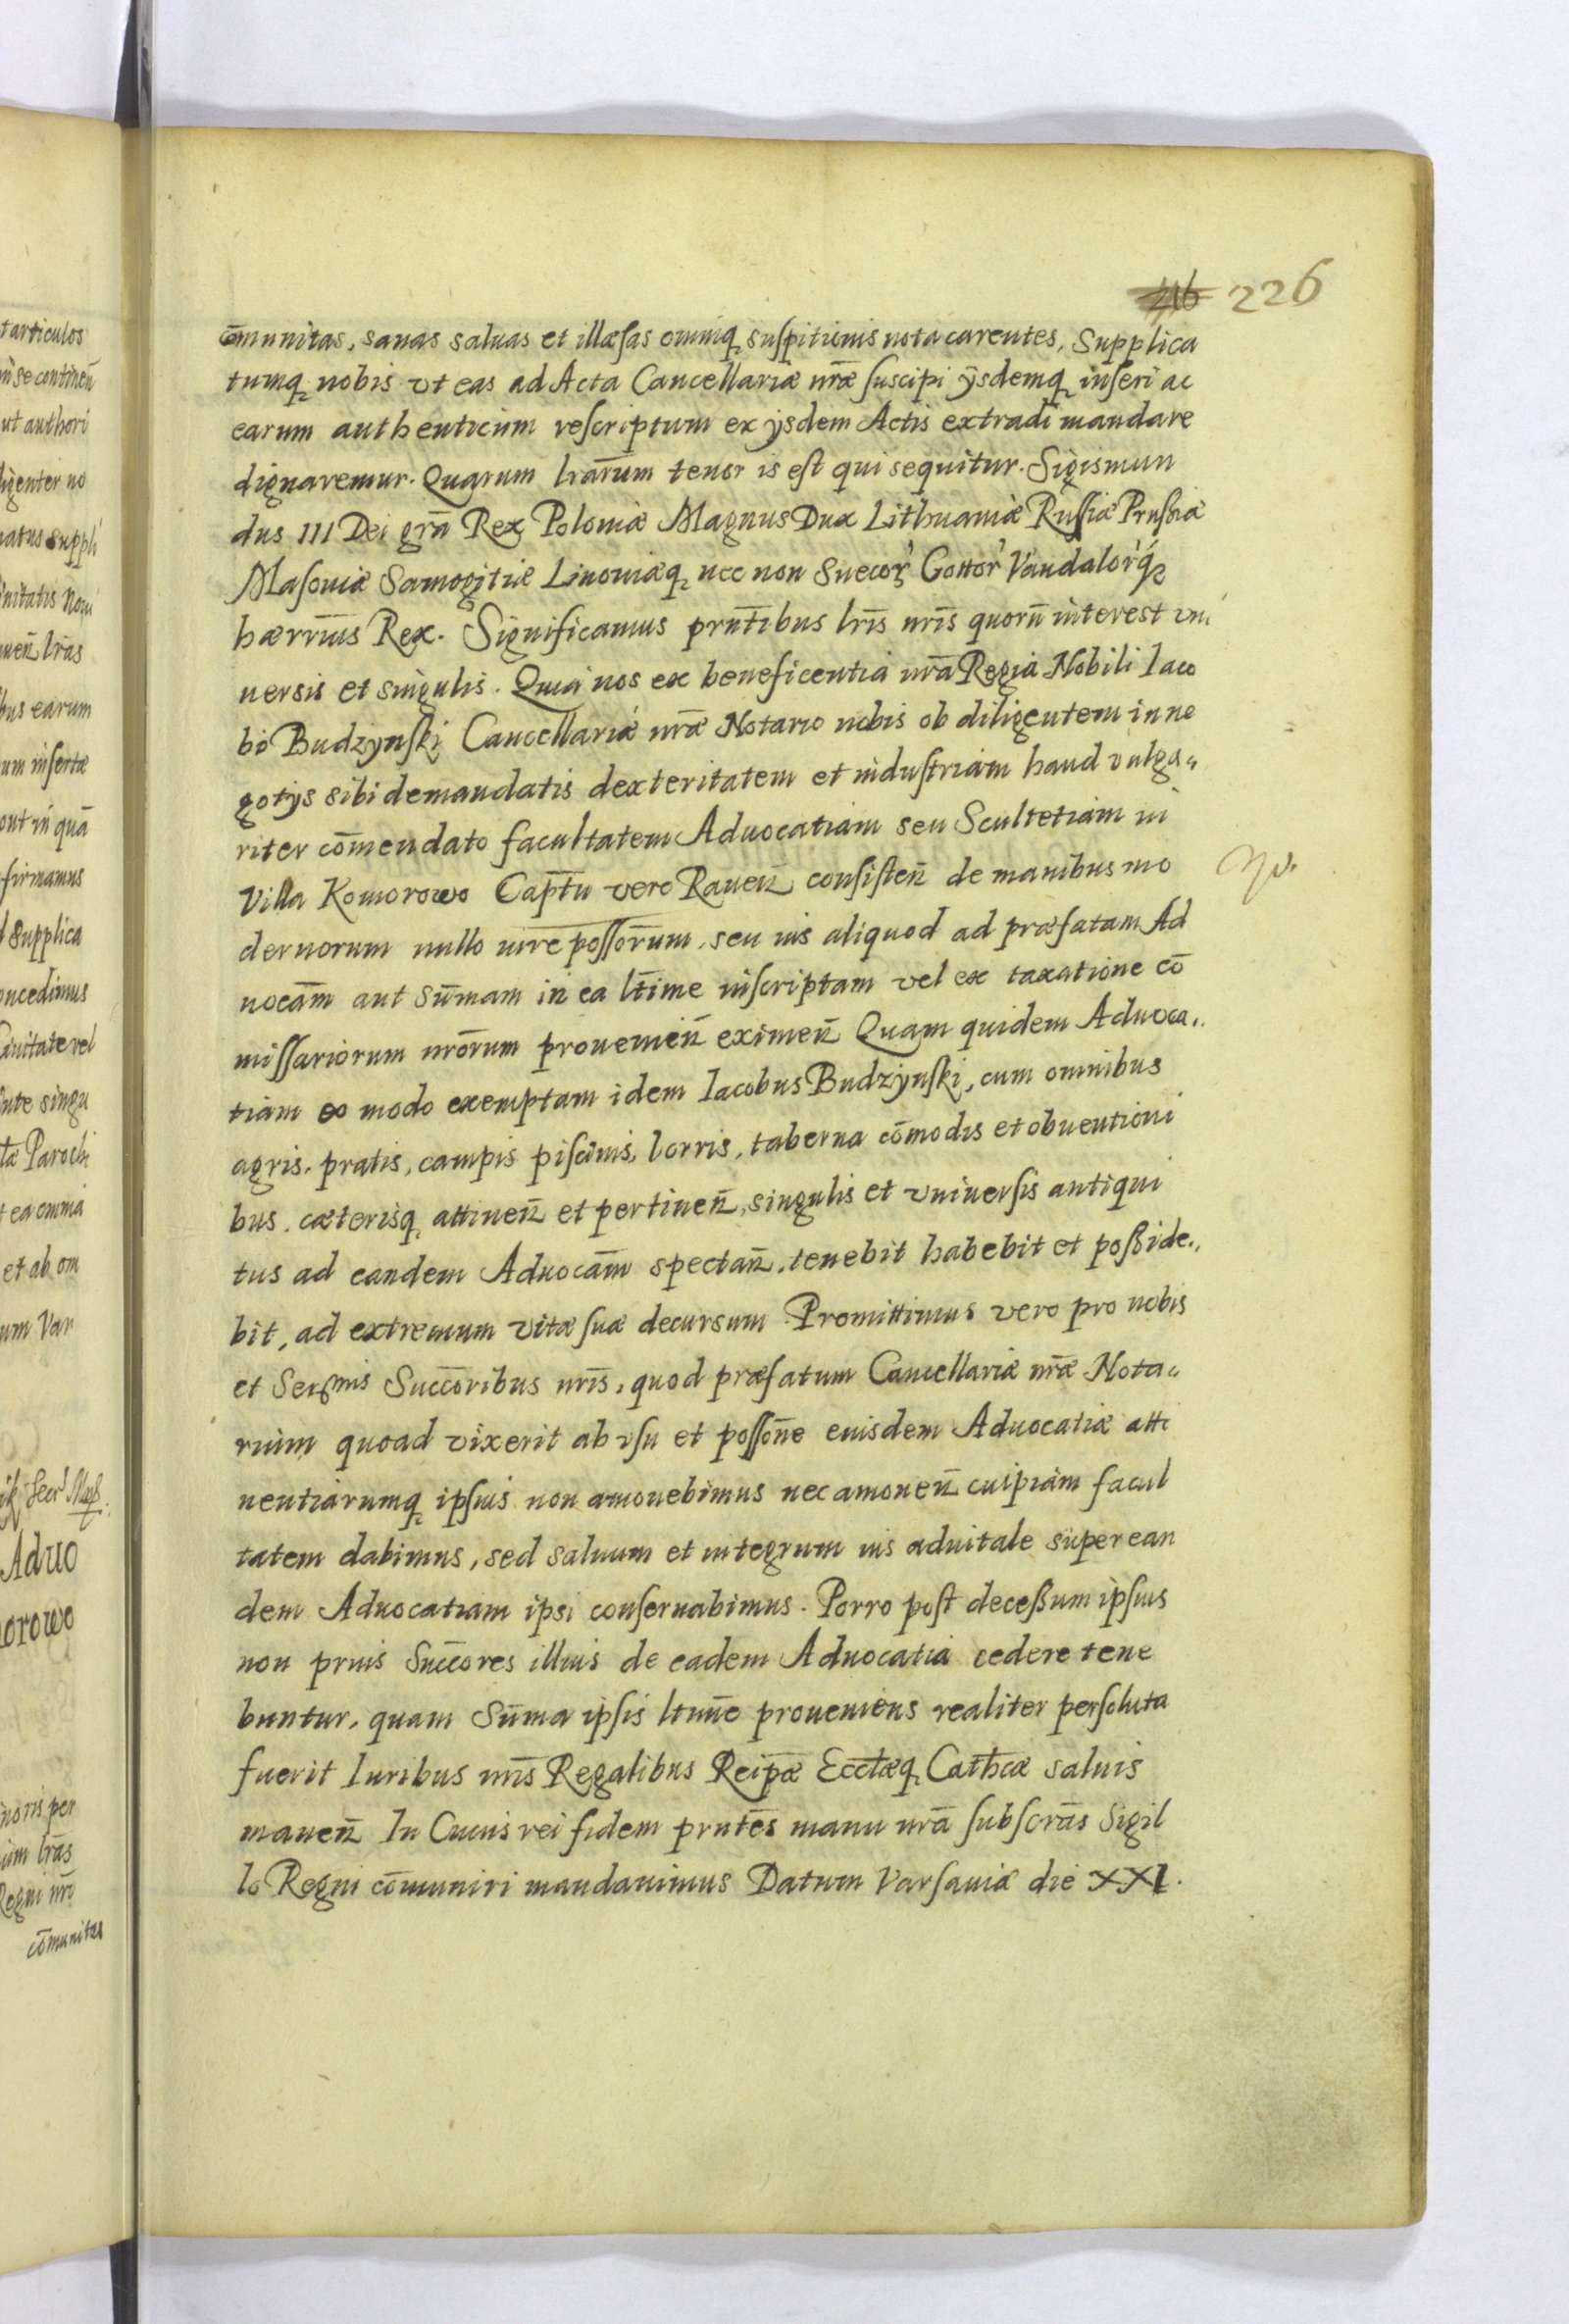 226
co̅munitas, sanas saluas et illæsas omniq, suspitionis nota carentes, Supplica
tumq, nobis vt eas ad Acta Cancellariæ nr̅æ suscipi ijsdemq, inseri ac
earum authenticum rescriptum ex ijsdem Actis extradi mandare
dignaremur. Quarum lrar̅um tenor is est qui sequitur. Sigismun
dus III Dei gra̅ Rex Poloniæ Magnus Dux Lithuaniæ Russiæ Prussiæ
Masouiæ Samogitiæ Liuoniæq, nec non Suecor' Gottor' Vandalor'q,
hærr̅ius Rex. Significamus prnt̅ibus lr̅is nr̅is quoru̅ interest vni
uersis et singulis. Quia nos ex beneficentia nra̅ Regia Nobili Iaco
bo Budzynski Cancellariæ nr̅æ Notario nobis ob diligentem in ne
gotijs sibi demandatis dexteritatem et industriam haud vulga„
riter co̅mendato facultatem Aduocatiam seu Scultetiam in
Villa Komorowo Capt̅u vero Rauen̅ consisten̅ de manibus mo
dernorum nullo iure possor̅um, seu ius aliquod ad præfatam Ad
uocam̅ aut Su̅mam in ea lt̅ime inscriptam vel ex taxatione co̅
missariorum nror̅um prouenien̅ eximen̅ Quam quidem Aduoca„
tiam eo modo exemptam idem Iacobus Budzijnski, cum omnibus
agris, pratis, campis piscinis, lorris, taberna co̅modis et obuentioni
bus, cæterisq, attinen̅ et pertinen̅, singulis et vniuersis antiqui
tus ad eandem Aduocam̅ spectan̅, tenebit habebit et posside„
bit, ad extremum vitæ suæ decursum Promittimus vero pro nobis
et Serßmis Succo̅ribus nr̅is, quod præfatum Cancellariæ nr̅æ Nota„
rium quoad vixerit ab vsu et posson̅e euisdem Aduocatiæ atti
nentiarumq, ipsius non amouebimus nec amouen̅ cuipiam facul
tatem dabimus, sed saluum et integrum ius aduitale super ean
dem Aduocatiam ipsi conseruabimus. Porro post decessum ipsius
non prius Succo̅res illius de eadem Aduocatia cedere tene
buntur, quam Su̅ma ipsis ltim̅e proueniens realiter persoluta
fuerit Iuribus nr̅is Regalibus Reip̅æ Eccl̅æq, Cath̅cæ saluis
manen̅ In Cuius rei fidem prnte̅s manu nra̅ subscra̅s Sigil
lo Regni co̅muniri mandauimus Datum Varsauiæ die XXI.